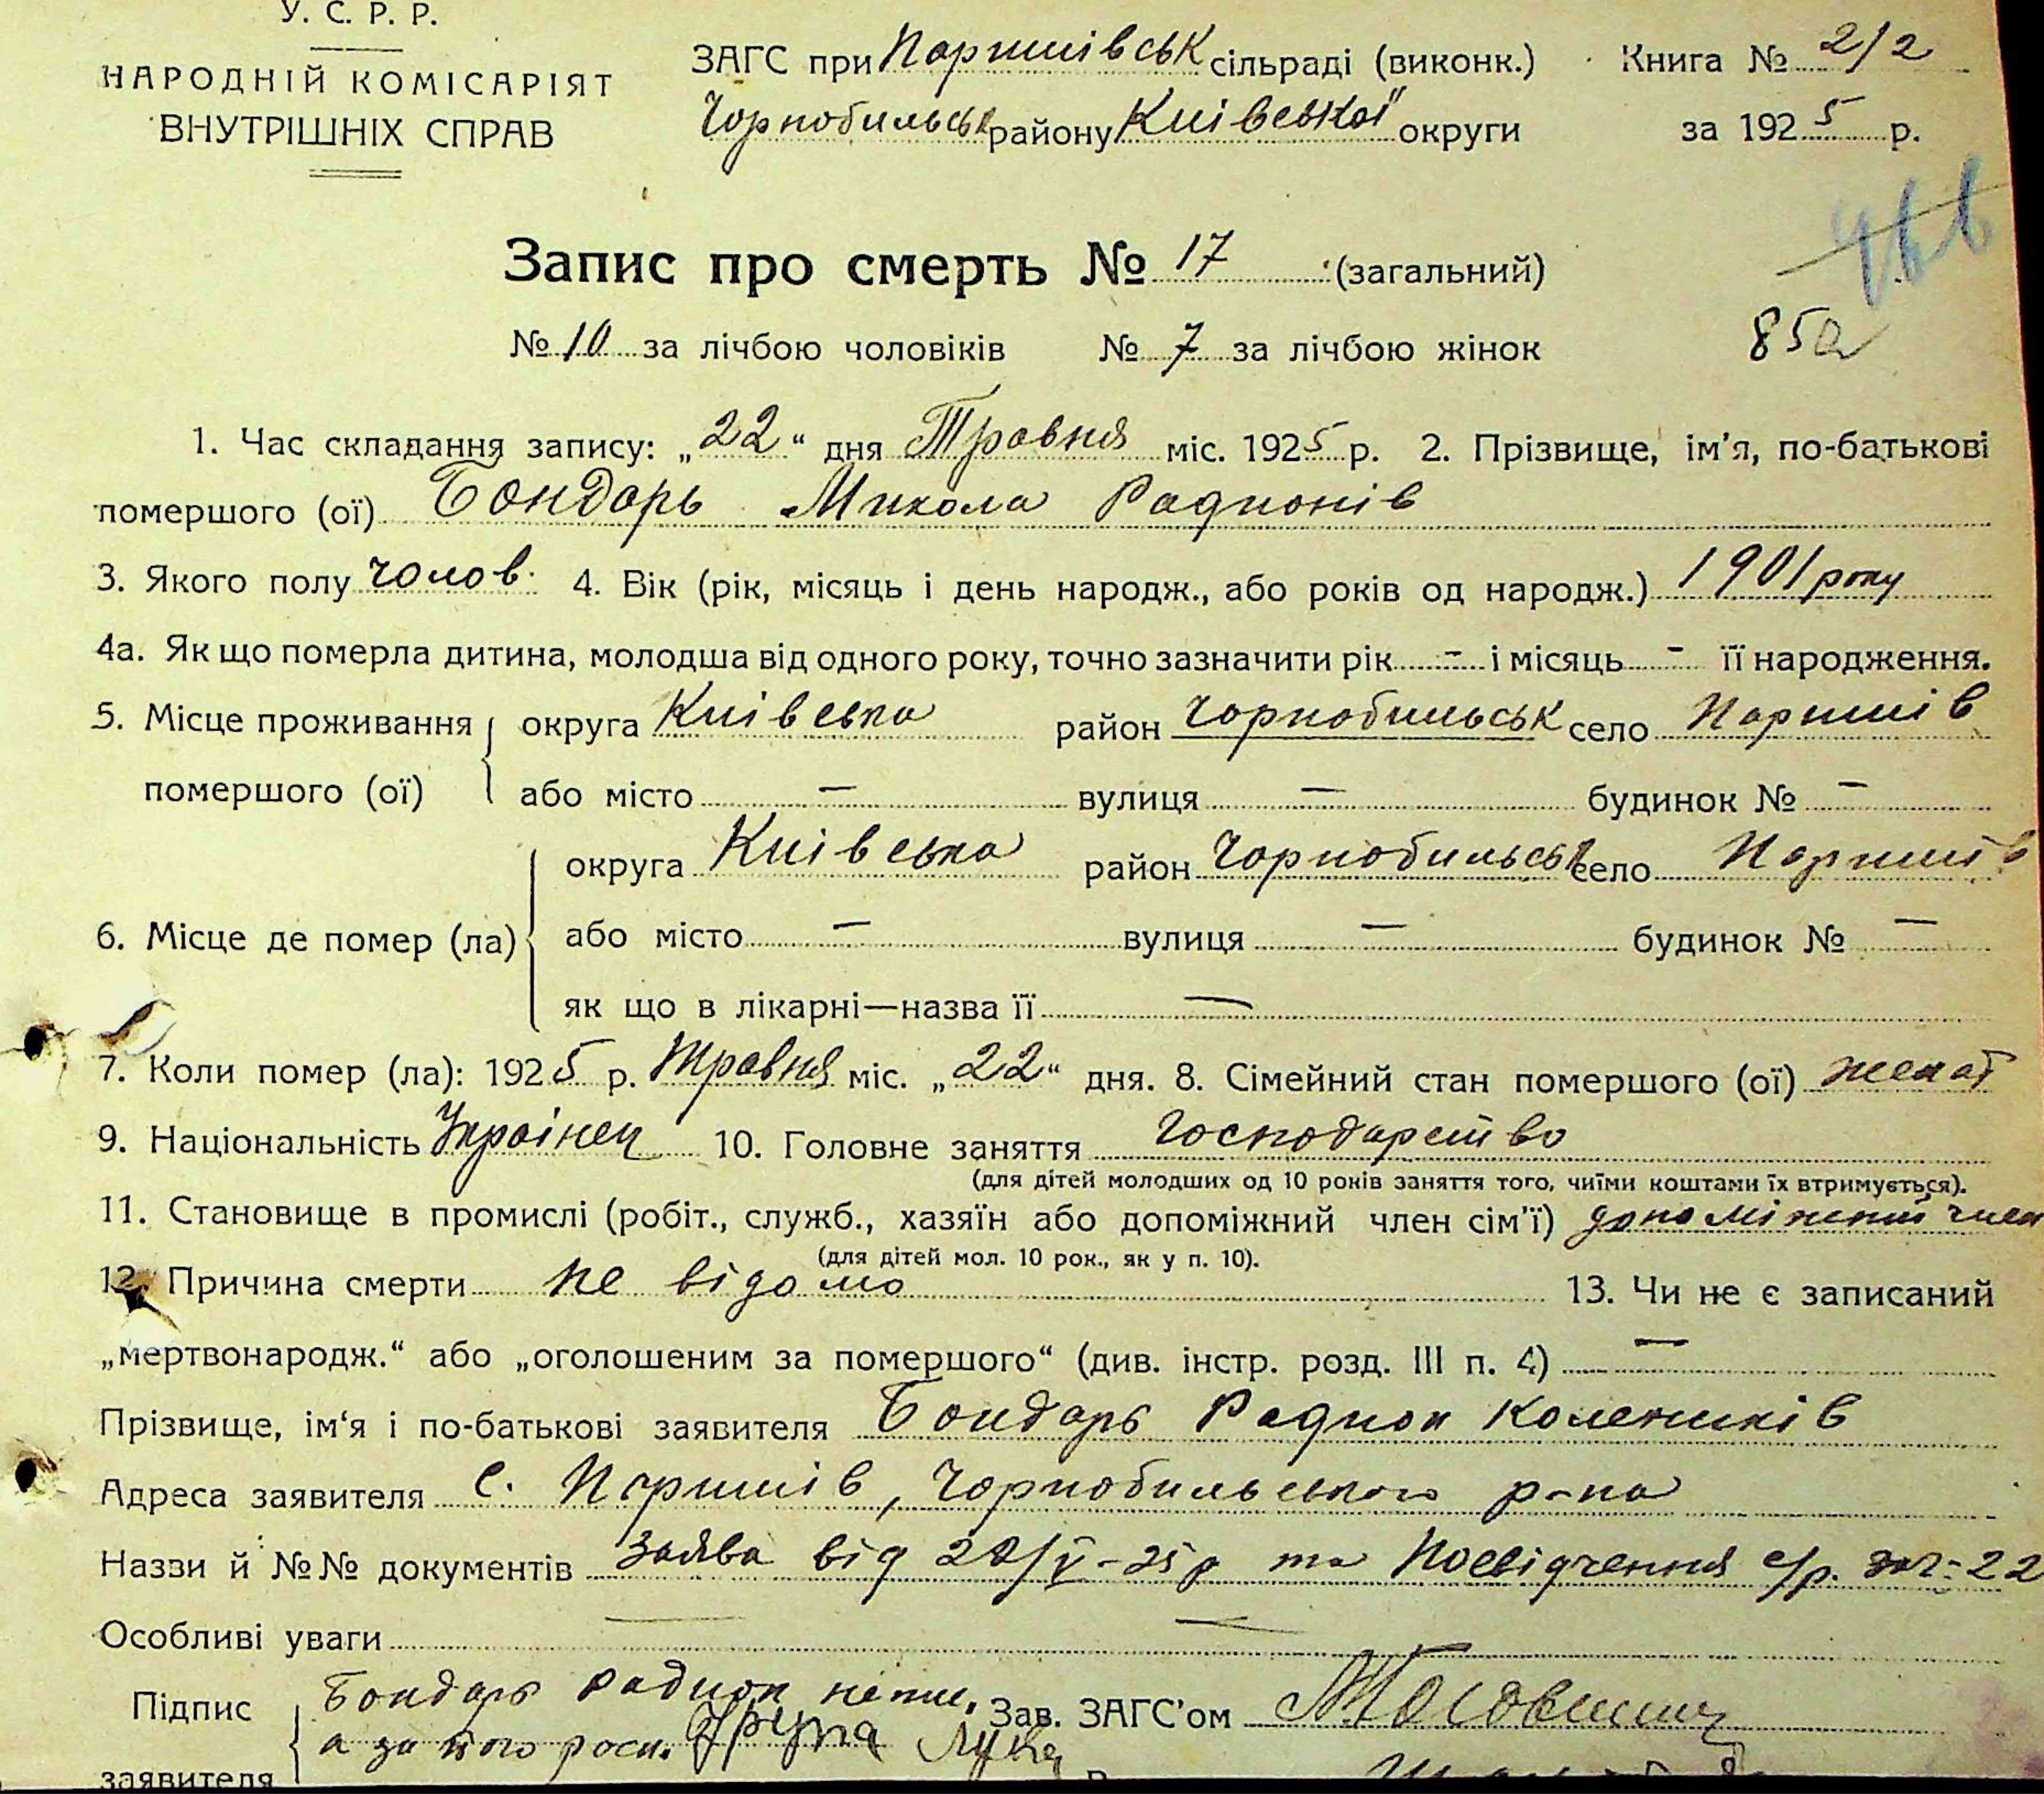 У. С. Р. Р.
НАРОДНІЙ КОМІСАРІЯТ
ВНУТРІШНІХ СПРАВ
ЗАГС при Паришівськ сільраді (виконк.)
Чорнобильськ району Київської округи
Книга № 2/2
за 1925 р.
Запис про смерть № 17 (загальний)
№ 10 за лічбою чоловіків № 7 за лічбою жінок
85
1. Час складання запису: „22“ дня Травня міс. 1925 р. 2. Прізвище, ім'я, по-батькові
помершого (ої) Бондарь Микола Радионів
3. Якого полу чолов. 4. Вік (рік, місяць і день народж., або років од народж.) 1901 року
4а. Як що померла дитина, молодша від одного року, точно зазначити рік - і місяць - її народження.
5. Місце проживання помершого (ої) округа Київська район Чорнобильськ село Паришів
або місто — вулиця — будинок № —
6. Місце де помер (ла) округа Київська район Чорнобильськ село Паришів
або місто — вулиця — будинок № —
як що в лікарні—назва її —
7. Коли помер (ла): 1925 р. Травня міс. „22“ дня. 8. Сімейний стан помершого (ої) женат
9. Національність Українец 10. Головне заняття Господарство
(для дітей молодших од 10 років заняття того, чиїми коштами їх втримується).
11. Становище в промислі (робіт., служб., хазяїн або допоміжний член сім'ї) допоміжний член
(для дітей мол. 10 рок., як у п. 10).
12. Причина смерти не відомо 13. Чи не є записаний
„мертвонародж.“ або „оголошеним за помершого“ (див. інстр. розд. III п. 4) —
Прізвище, ім'я і по-батькові заявителя Бондарь Радион
Адреса заявителя С. Паришів, Чорнобильського р-на
Назви й №№ документів Заява від 22/V-25р та Посвідчення с/р. 22
Особливі уваги — —
Підпис заявителя Бондарь Радион непис.
а за його росп. Лука
Зав. ЗАГС'ом